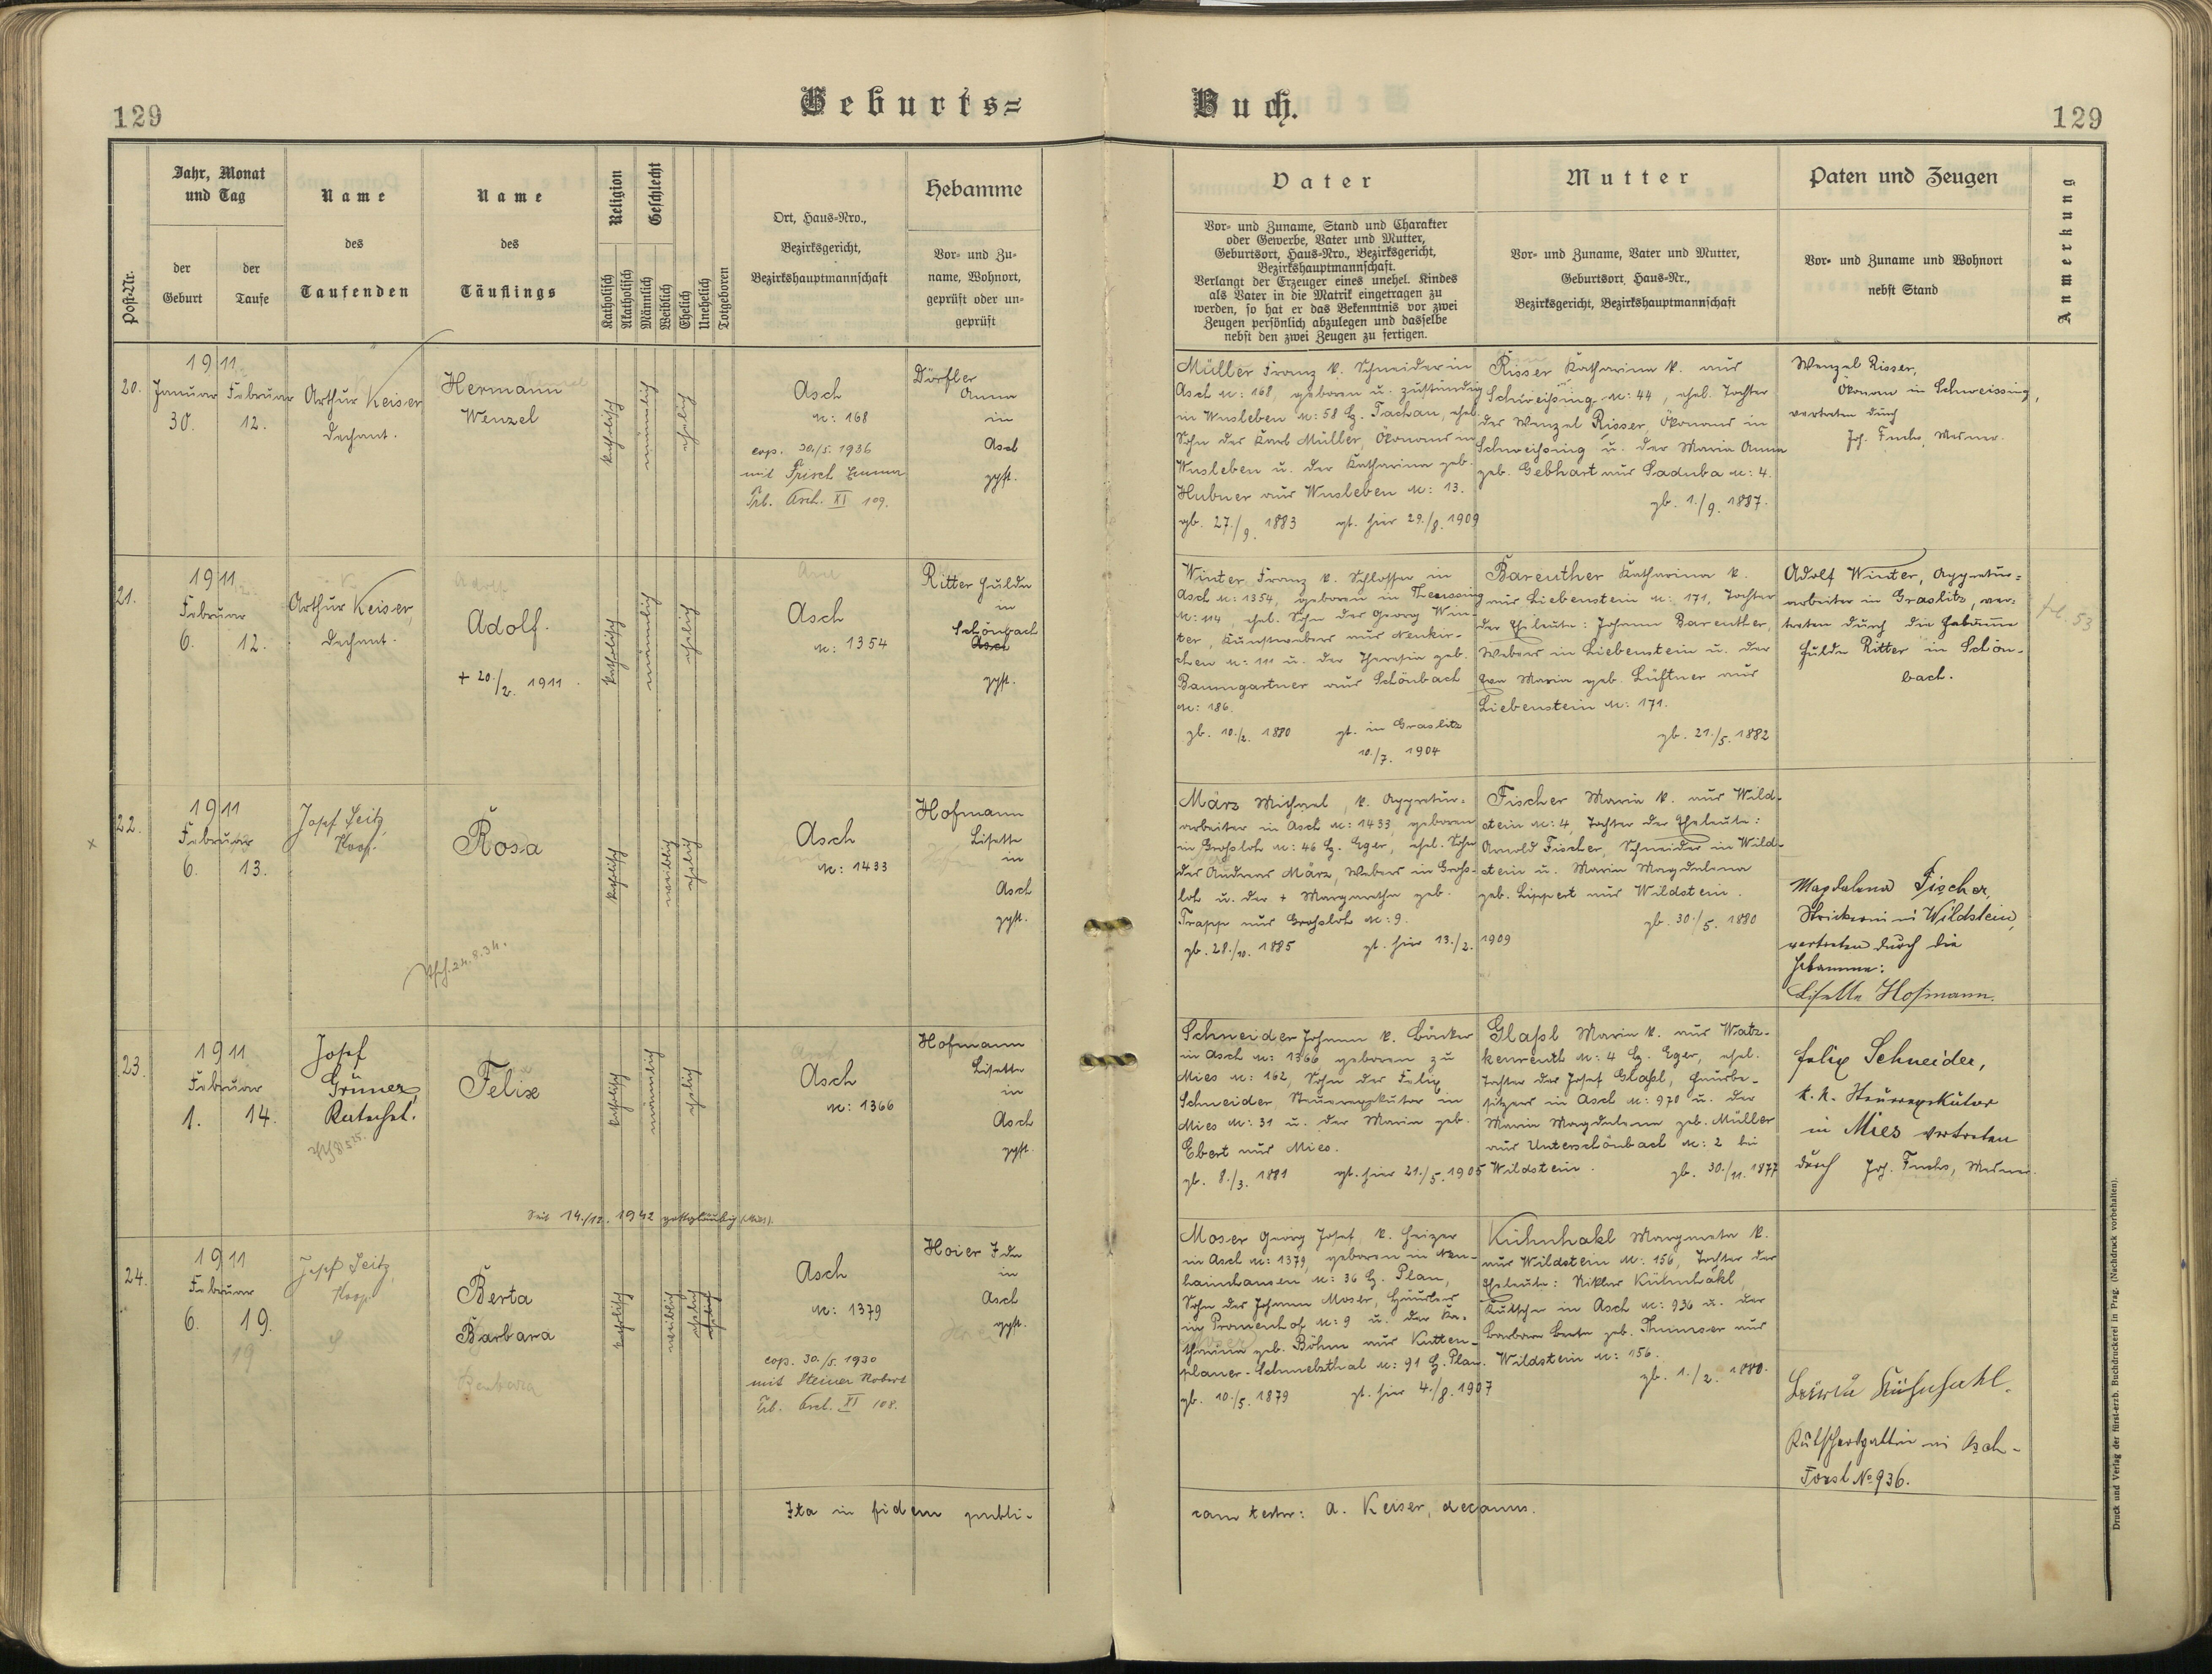 129
Geburts=
Buch.
129
Post-Nr.
Jahr, Monat
und Tag
der
Geburt
der
Taufe
Name
des
Taufenden
Name
des
Täuflings
Religion
Katholisch
Akatholisch
Geschlecht
Männlich
Weiblich
Ehelich
Unehelich
Totgeboren
Ort, Haus-Nro.,
Bezirksgericht,
Bezirkshauptmannschaft
Hebamme
Vor- und Zu-
name, Wohnort,
geprüft oder un-
geprüft
Vater
Vor- und Zuname, Stand und Charakter
oder Gewerbe, Vater und Mutter,
Geburtsort, Haus-Nro., Bezirksgericht,
Bezirkshauptmannschaft.
Verlangt der Erzeuger eines unehel. Kindes
als Vater in die Matrik eingetragen zu
werden, so hat er das Bekenntnis vor zwei
Zeugen persönlich abzulegen und dasselbe
nebst den zwei Zeugen zu fertigen.
Mutter
Vor- und Zuname, Vater und Mutter,
Geburtsort, Haus-Nr.,
Bezirksgericht, Bezirkshauptmannschaft
Paten und Zeugen
Vor- und Zuname und Wohnort
nebst Stand
Anmerkung
20.
1911
Januar Februar
30. 12.
Arthur Keiser
Dechant.
Hermann
Wenzel
katholisch
männlich
ehelich
Asch
N: 168
cop. 30./5. 1936
mit Frisch Emma
Trb. Asch. XI 109.
Dörfler
Anna
in
Asch
gpft.
Müller Franz k. Schneider in
Asch N: 168, geboren u. zuständig
in Wusleben N: 58 Bz. Tachau, ehel.
Sohn des Karl Müller, Ökonoms in
Wusleben u. der Katharina geb.
Hubner aus Wusleben N: 13.
gb. 27./9. 1883 gt. hier 29./8. 1909
Risser Katharina k. aus
Schweißing N: 44, ehel. Tochter
des Wenzel Risser, Ökonoms in
Schweißing u. der Maria Anna
geb. Gebhart aus Saduba N: 4.
gb. 1./9. 1887.
Wenzel Risser,
Ökonom in Schweissing,
vertreten durch
Jos. Fuchs, Mesner.
21.
1911
Februar
6. 12.
Arthur Keiser,
Dechant.
Adolf.
+ 20./2. 1911.
katholisch
männlich
ehelich
Asch
N: 1354
Ritter Hulda
in
Schönbach
Asch
gpft.
Winter Franz k. Schlosser in
Asch N: 1354, geboren in Theussing
N: 114, ehel. Sohn des Georg Win-
ter, Kunstwebers aus Neukir-
chen N: 111 u. der Theresia geb.
Baumgartner aus Schönbach
N: 186.
gb. 10./2. 1880 gt. in Graslitz
10./7. 1904
Bareuther Katharina k.
aus Liebenstein N: 171, Tochter
der Eheleute: Johann Bareuther,
Webers in Liebenstein u. der
Eva Maria geb. Lüftner aus
Liebenstein N: 171.
gb. 21./5. 1882
Adolf Winter, Appretur=
arbeiter in Graslitz, ver-
treten durch die Hebamme
Hulda Ritter in Schön-
bach.
53
x
22.
1911
Februar
6. 13.
Josef Seitz,
Koop.
Rosa
24.8.34.
katholisch
weiblich
ehelich
Asch
N: 1433
Hofmann
Lisette
in
Asch
gpft.
März Michael, k. Appretur=
arbeiter in Asch N: 1433, geboren
in Großloh N: 46 Bz. Eger, ehel. Sohn
des Andreas März, Webers in Groß-
loh u. der + Margaretha geb.
Trapp aus Großloh N: 9.
gb. 28./10. 1885 gt. hier 13./2. 1909
Fischer Maria k. aus Wild-
stein N: 4, Tochter der Eheleute:
Arnold Fischer, Schneider in Wild-
stein u. Maria Magdalena
geb. Lippert aus Wildstein.
gb. 30./5. 1880
Magdalena Fischer,
Strickerin in Wildstein,
vertreten durch die
Hebamme:
Lisette Hofmann.
23.
1911
Februar
1. 14.
Josef
Grüner,
Katechet.
Felix
katholisch
männlich
ehelich
Seit 14./12. 1942 gottgläubig (Mies).
Asch
N: 1366
Hofmann
Lisette
in
Asch
gpft.
Schneider Johann k. Bäcker
in Asch N: 1366 geboren zu
Mies N: 162, Sohn des Felix
Schneider, Steuerexekutor in
Mies N: 31 u. der Maria geb.
Ebert aus Mies.
gb. 8./3. 1881 gt. hier 21./5. 1905
Glaßl Maria k. aus Watz-
kenreuth N: 4 Bz. Eger, ehel.
Tochter des Josef Glaßl, Hausbe-
sitzers in Asch N: 970 u. der
Maria Magdalena geb. Müller
aus Unterschönbach N: 2 bei
Wildstein. gb. 30./11. 1877
Felix Schneider,
k. k. Steuerexekutor
in Mies vertreten
durch Jos. Fuchs, Mesner.
24.
1911
Februar
6. 19.
Josef Seitz,
Koop.
Berta
Barbara
katholisch
weiblich
ehelich
ehelich
Asch
N: 1379
cop. 30./5. 1930
mit Steiner Robert
Trb. Asch. XI 108.
Hoier Ida
in
Asch
gpft.
Moser Georg Josef, k. Heizer
in Asch N: 1379, geboren in Neu-
hainhausen N: 36 Bz. Plan,
Sohn des Johann Moser, Häuslers
in Promenhof N: 9 u. der Ka-
tharina geb. Böhm aus Kutten-
planer-Schmelzthal N: 91 Bz. Plan.
gb. 10./5. 1879 gt. hier 4./8. 1907
Kühnhakl Margareta k.
aus Wildstein N: 156, Tochter der
Eheleute: Niklas Kühnhakl,
Kutscher in Asch N: 936 u. der
Barbara Berta geb. Thumser aus
Wildstein N: 156.
gb. 1./2. 1880.
Kühnhakl.
Kutschersgattin in Asch-
Forst No 936.
Ita in fidem publi-
cam testor: A. Keiser, decanus.
Druck und Verlag der fürst-erzb. Buchdruckerei in Prag. (Nachdruck vorbehalten).